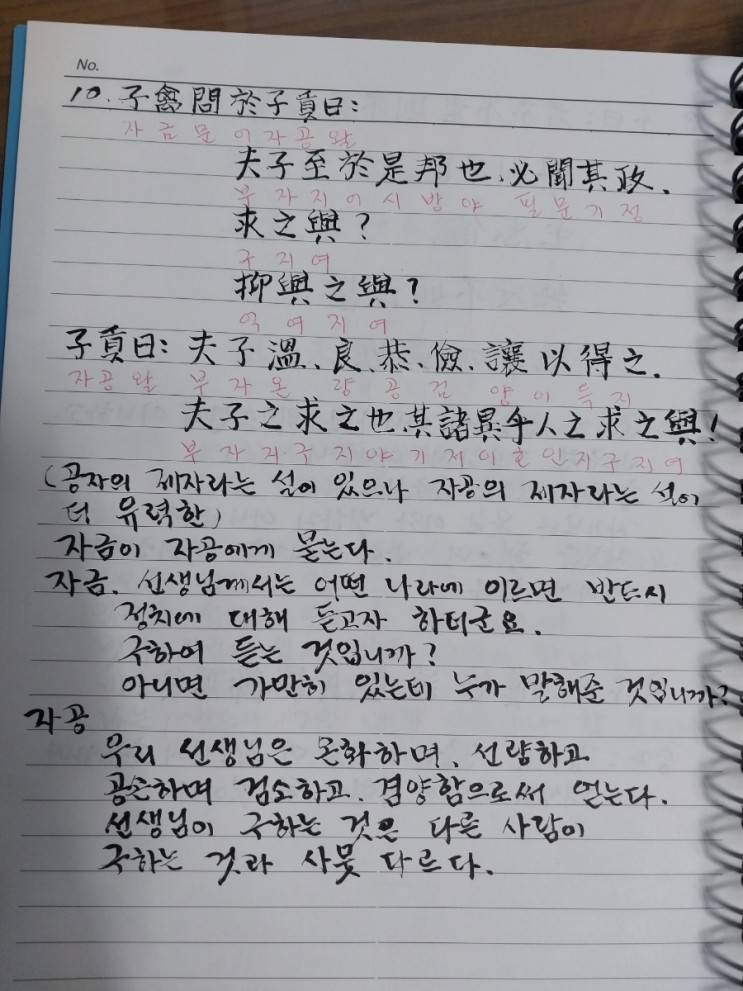 No.
10. 子禽問於子貢曰:
자금문어자공왈
夫子至於是邦也、必聞其政.
부자지어시방야 필문기정
求之與?
구지여
抑與之與?
억여지여
子貢曰: 夫子溫、良、恭、儉、讓以得之.
자공왈 부자온 량공검 양이득지
夫子之求之也其諸異乎人之求之與!
부자지구지야기저이호인지구지여
(공자의 제자라는 설이 있으나 자공의 제자라는 설이
더 유력한)
자금이 자공에게 묻는다.
자금. 선생님께서는 어떤 나라에 이르면 반드시
정치에 대해 듣고자 하더군요.
구하여 듣는 것입니까?
아니면 가만히 있는데 누가 말해준 것입니까?
자공
우리 선생님은 온화하며, 선량하고
공손하며 검소하고, 겸양함으로써 얻는다.
선생님이 구하는 것은 다른 사람이
구하는 것과 사뭇 다르다.